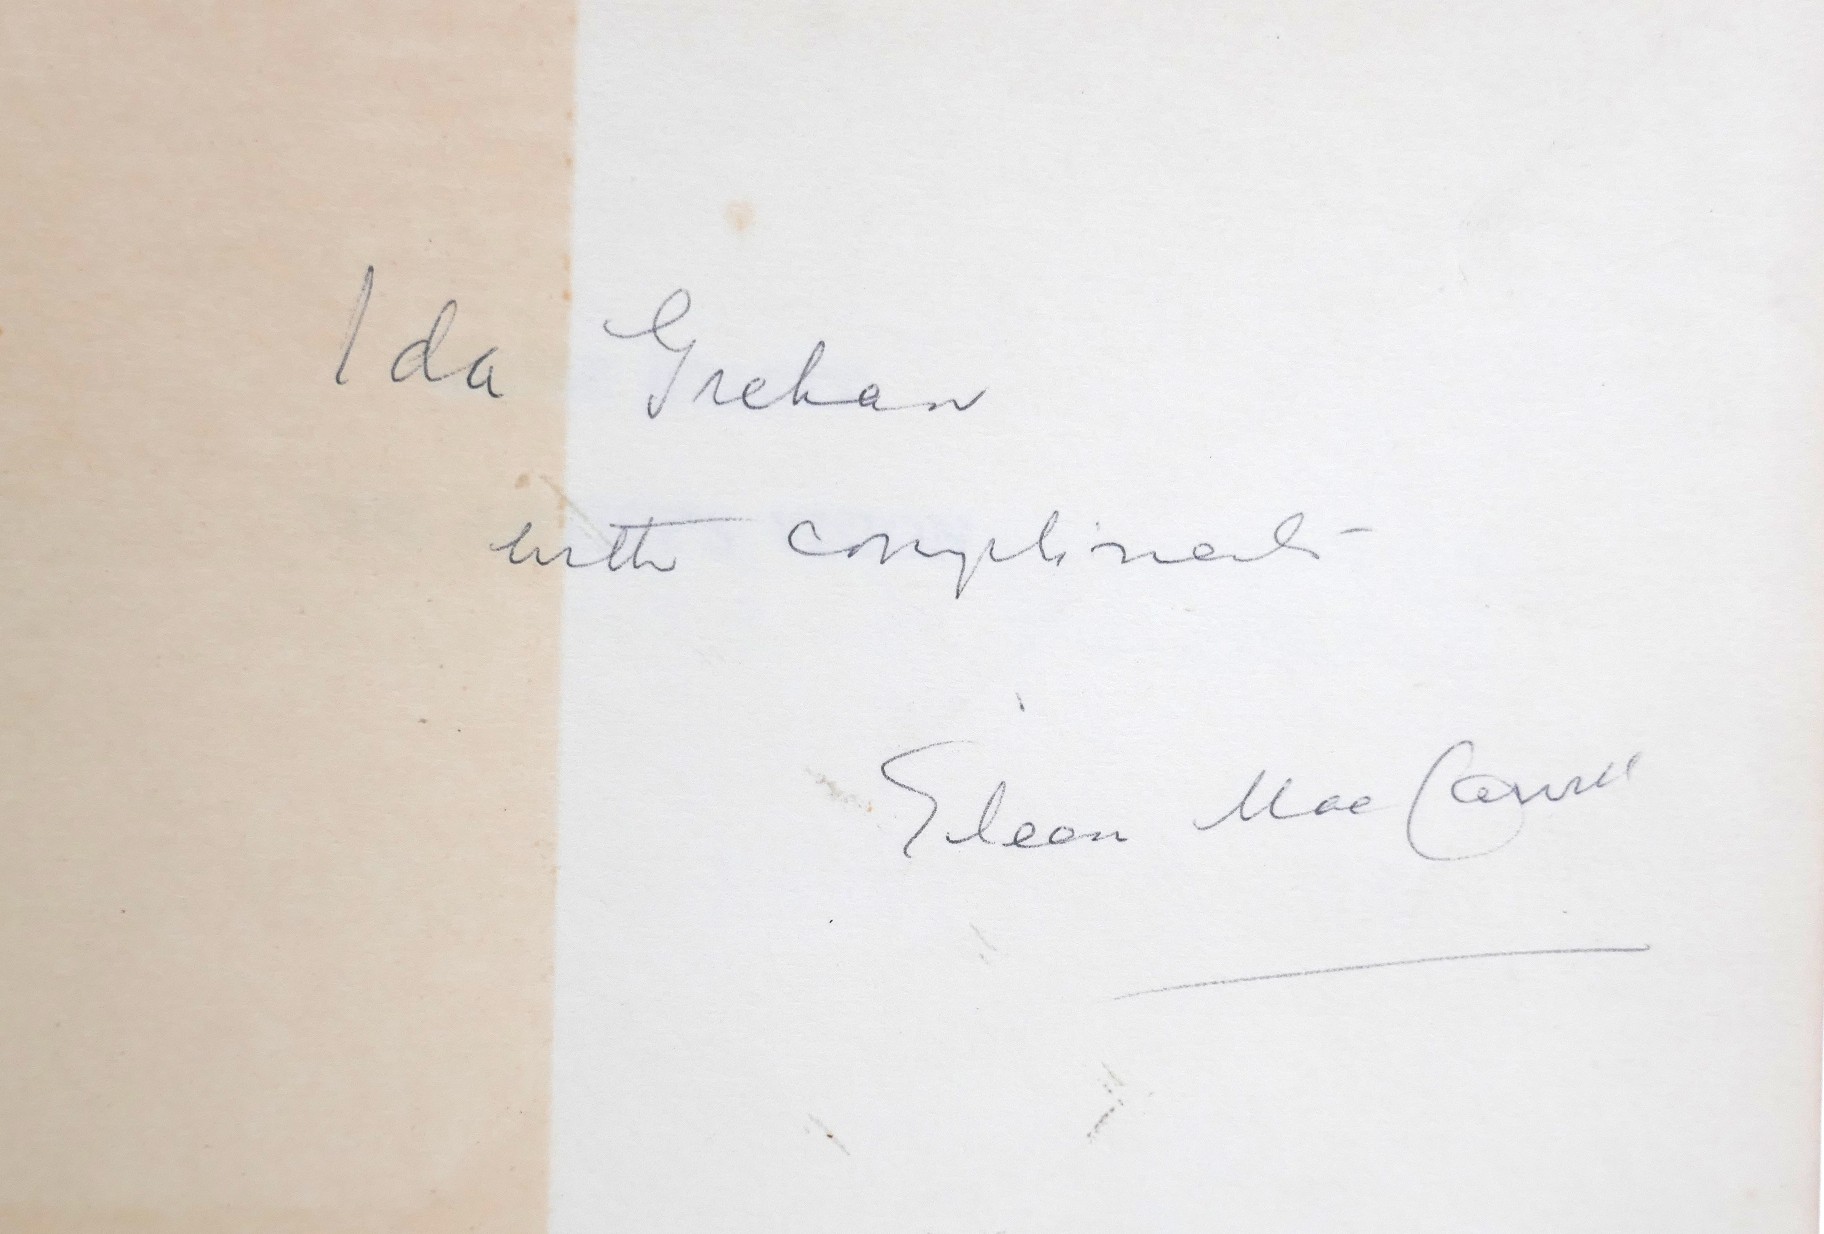 Ida Grehan
with compliments
Eileen MacCarvill